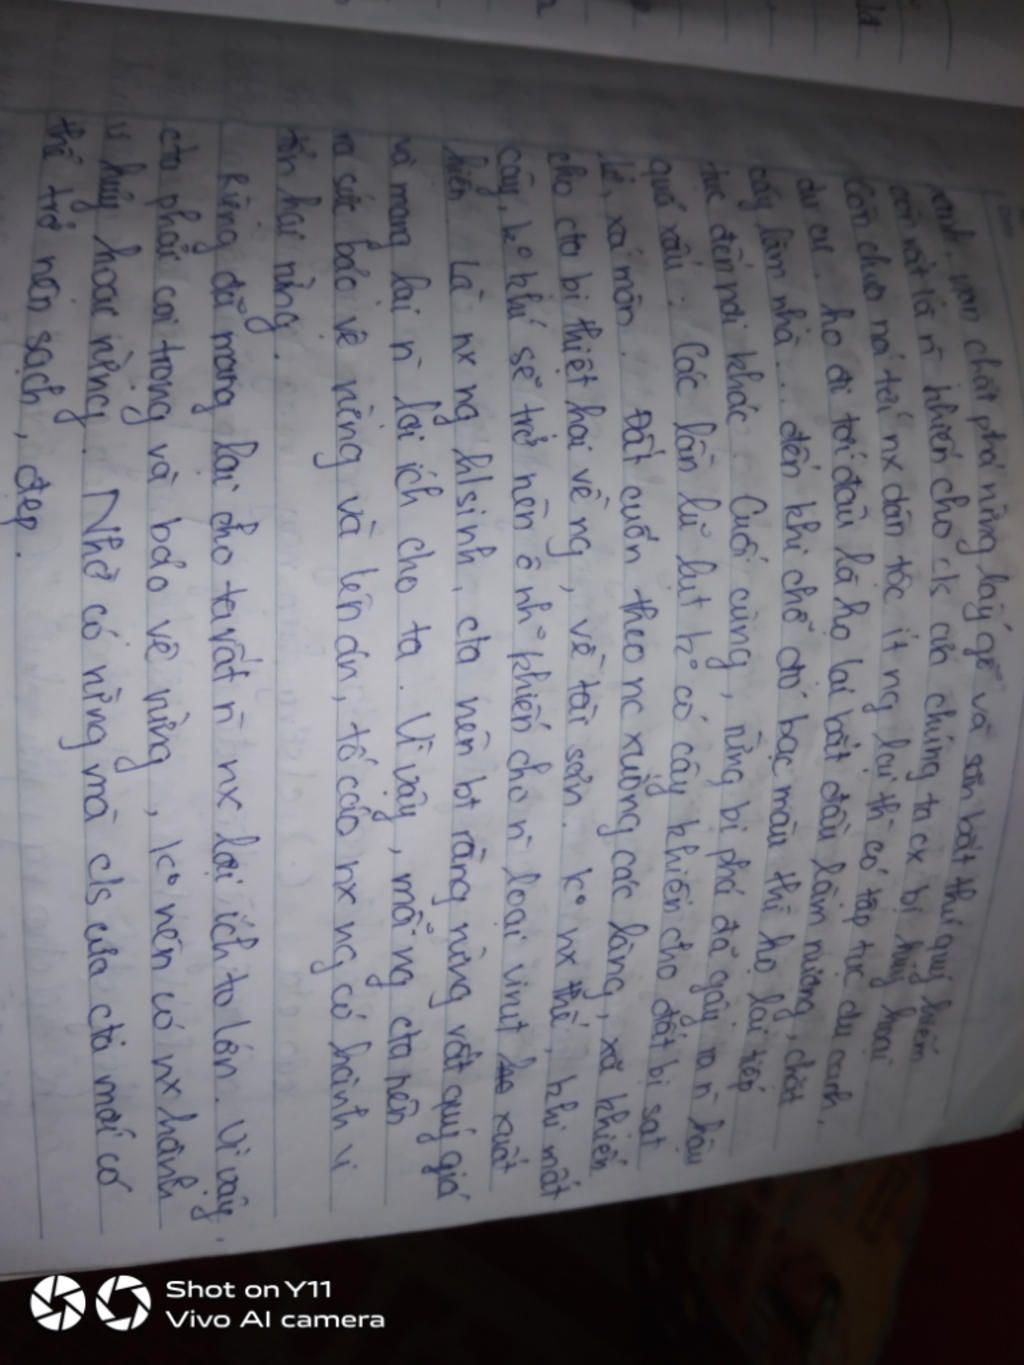 xanh. vẫn chặt phá rừng lấy gỗ và săn bắt thú quý hiếm
còn rất là n̄ khiến cho c/s của chúng ta cx bị huỷ hoại
Còn chưa nói tới nx dân tộc ít ng lại th̀ có tập tục du canh,
du cư. họ đi tới đâu là họ lại bắt đầu làm nương, chặt
cây làm nhà... đến khi chỗ đó bạc màu thì họ lại tiếp
tục đến nơi khác. Cuối cùng, rừng bị phá đã gây ra n̄ hậu
quả xấu: Các lần lũ lụt k° có cây khiến cho đất bị sạt
lở, xói mòn. Đất cuốn theo nc xuống các làng, xã khiến
cho cta bị thiệt hại về ng, về tài sản. k° nx thế, khi mất
cây, k° khí sẽ trở nên ô nh° khiến cho n̄ loại virut xuất
hiện. Là nx ng h/sinh, cta nên bt rằng rừng rất quý giá
và mang lại n̄ lợi ích cho ta. Vì vậy, mỗi ng cta nên
ra sức bảo vệ rừng và lên án, tố cáo nx ng có hành vi
tổn hại rừng.
Rừng đã mang lại cho ta rất n̄ nx lợi ích to lớn. Vì vậy,
cta phải coi trọng và bảo vệ rừng, k° nên có nx hành
vi hủy hoại rừng. Nhờ có rừng mà c/s của cta mới có
thể trở nên sạch, đẹp.
Shot on Y11
Vivo AI camera